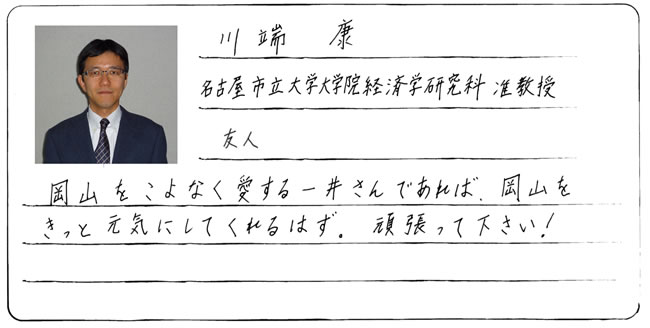 川端 康
名古屋市立大学大学院経済学研究科 准教授
友人
岡山をこよなく愛する一井さんであれば、岡山を
きっと元気にしてくれるはず。 頑張って下さい!